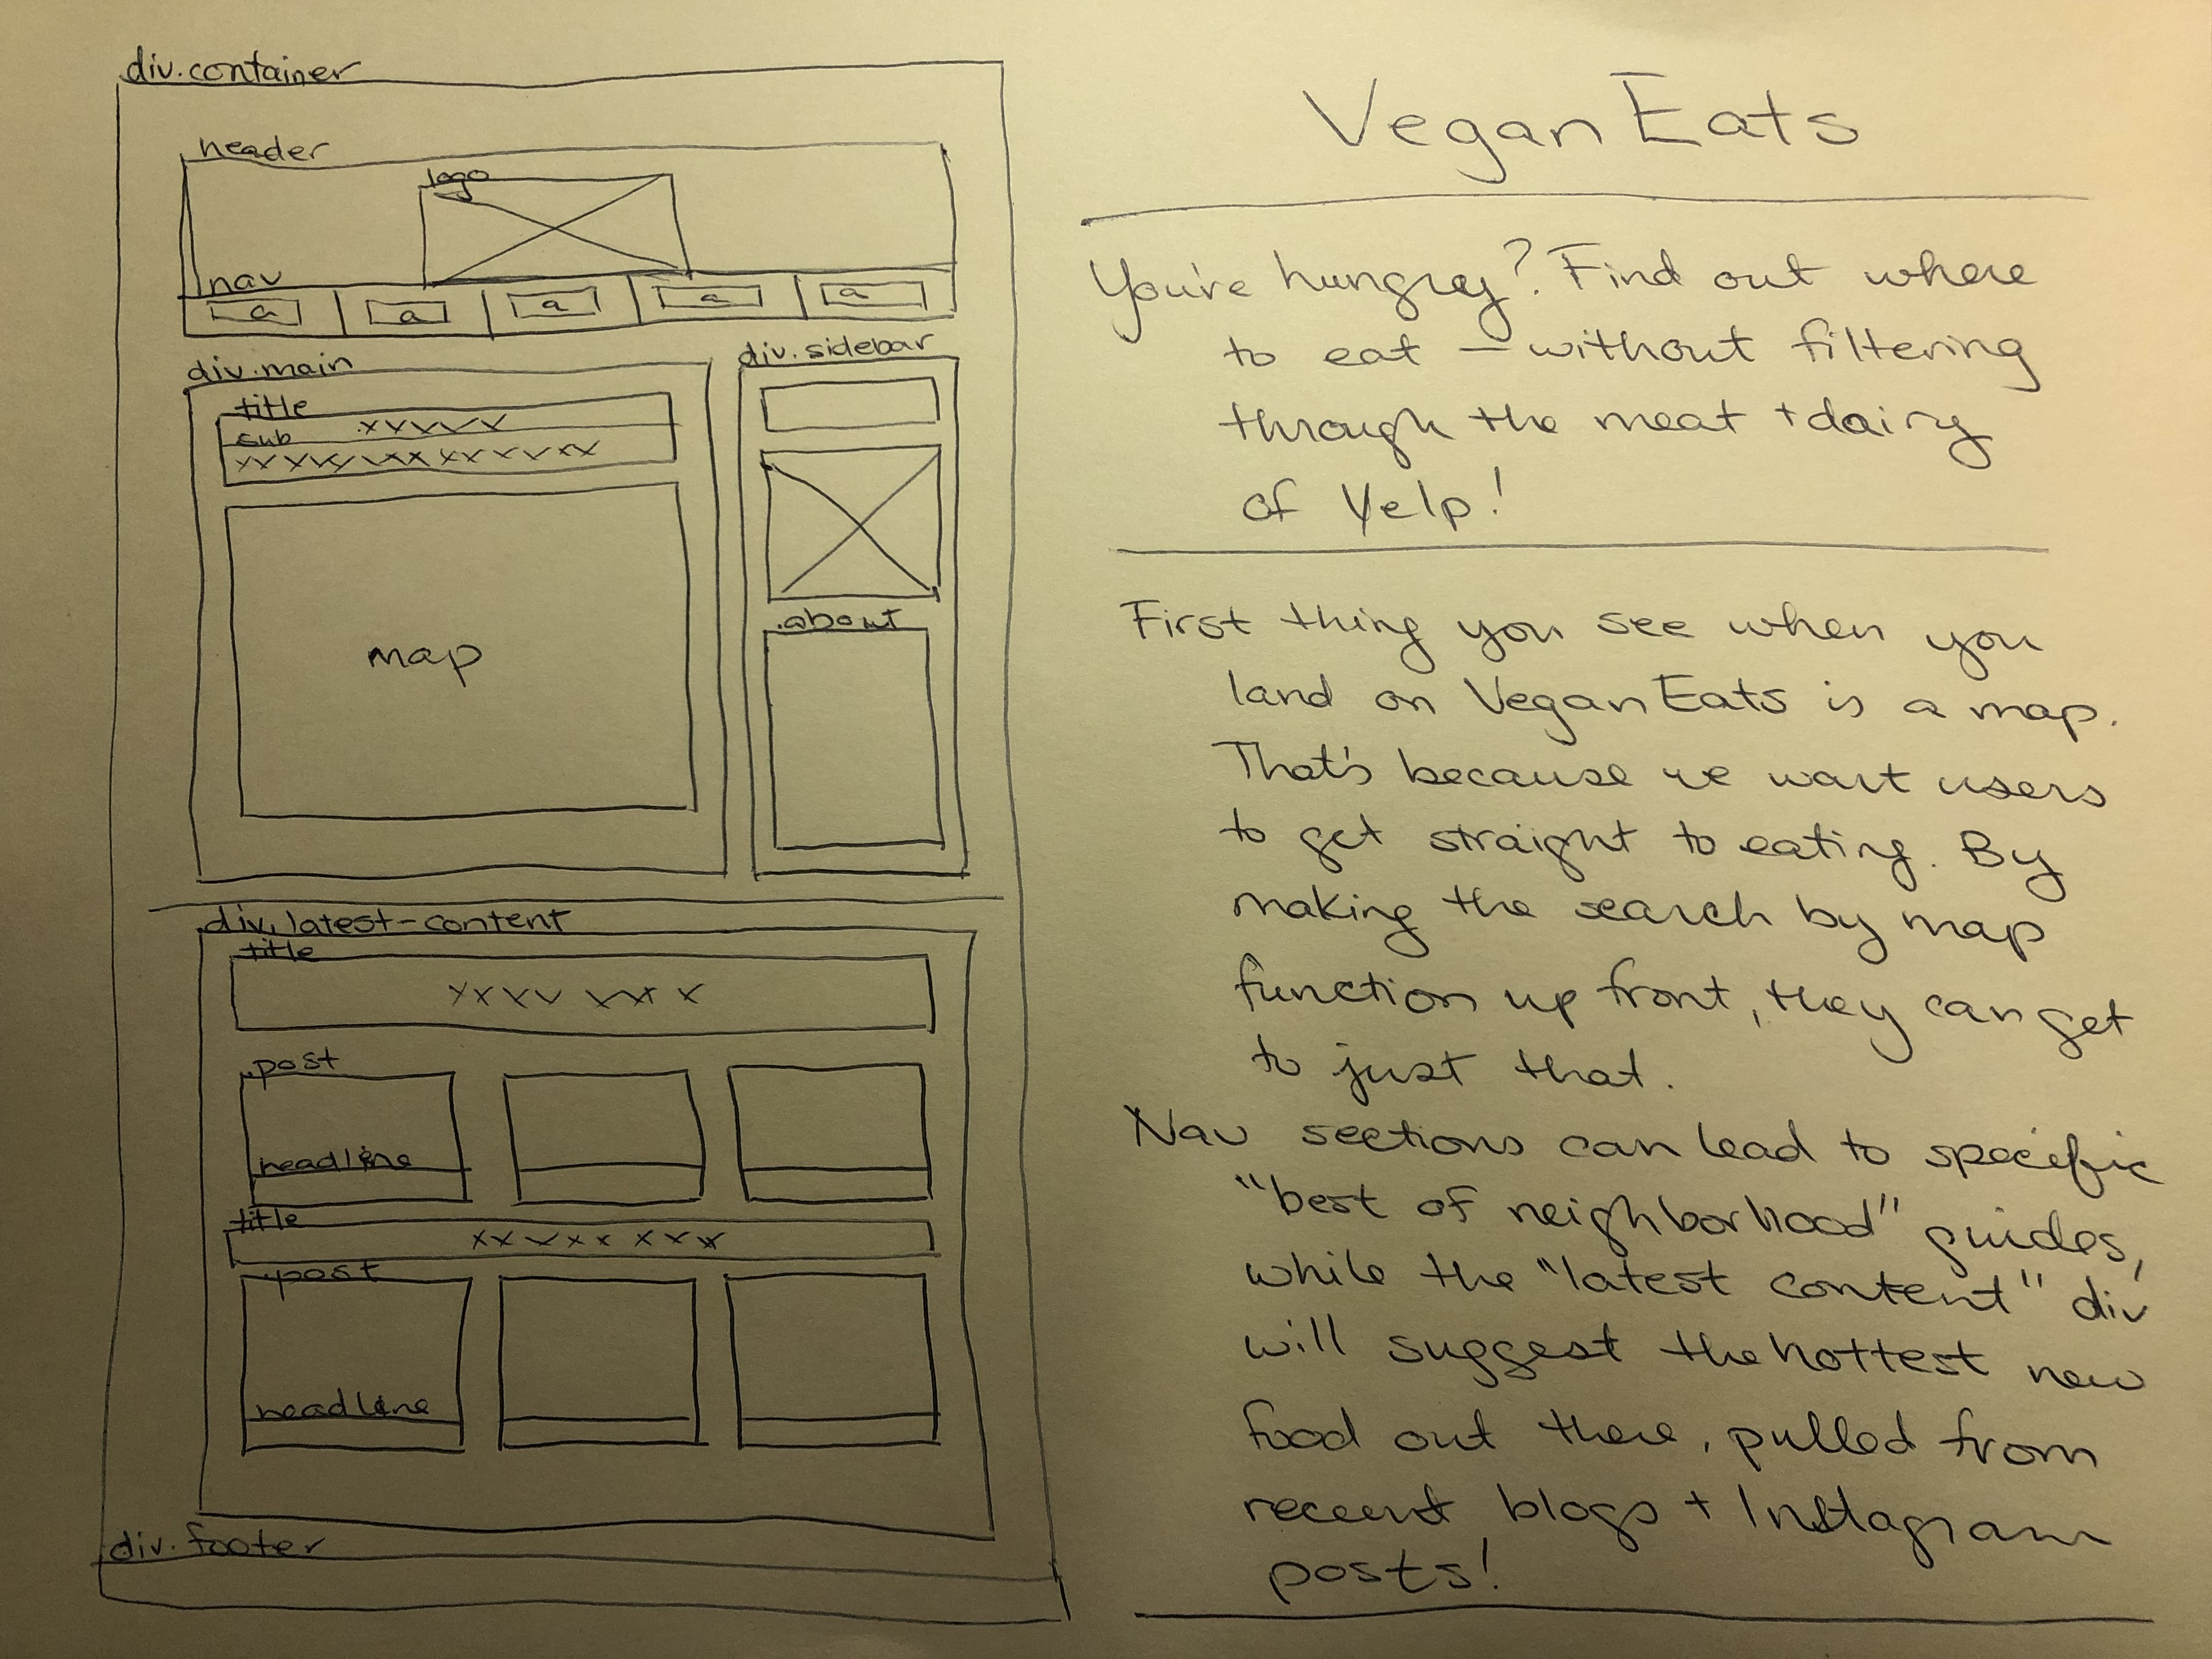 div.container
header
logo
nav
a a a a a
div.main
title
xxxxx
sub
xx xxxx xxx xx xxxxx
map
div.sidebar
.about
div.latest-content
title
xxxx xxx x
.post
headline
title
xx xxxx xxxx
.post
headline
div.footer
Vegan Eats
You're hungry? Find out where
to eat – without filtering
through the meat + dairy
of Yelp!
First thing you see when you
land on Vegan Eats is a map.
That's because we want users
to get straight to eating. By
making the search by map
function up front, they can get
to just that.
Nav sections can lead to specific
"best of neighborhood" guides,
while the "latest content" div
will suggest the hottest new
food out there, pulled from
recent blogs + Instagram
posts!